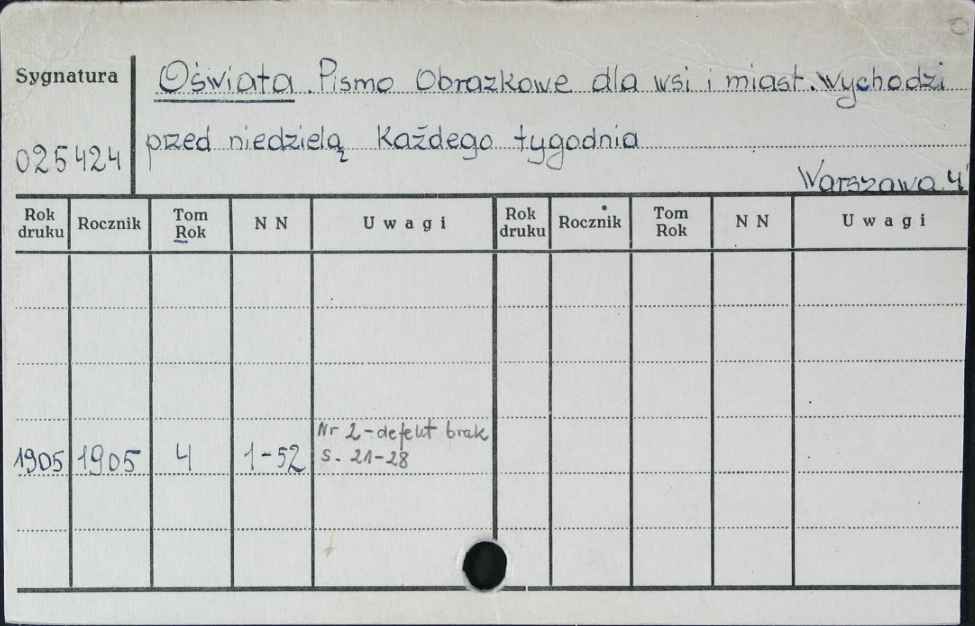 Sygnatura
025424
Oświata. Pismo Obrazkowe dla wsi i miast. Wychodzi
przed niedzielą Każdego tygodnia
Warszawa 4°
Rok druku Rocznik Tom Rok N N Uwagi Rok druku Rocznik Tom Rok N N Uwagi
Nr 2 - defekt brak
1905 1905 4 1-52 s. 21-28